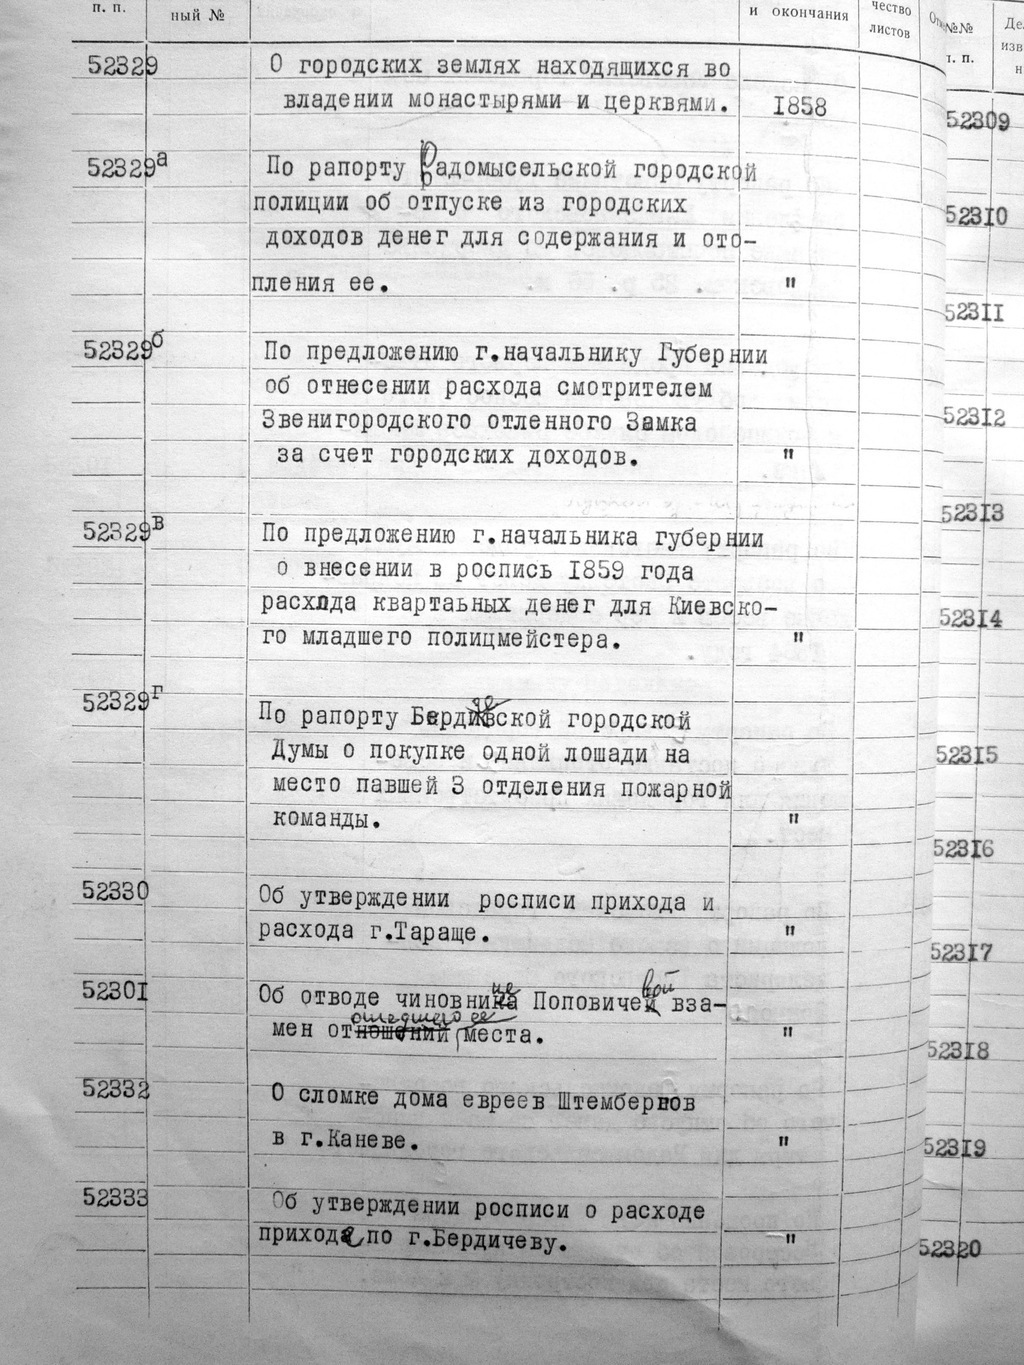 п. п.
ный №
и окончания
чество
листов
№№
п. п.
52329 О городских землях находящихся во
владении монастырями и церквями. 1858
52329а По рапорту Радомысельской городской
полиции об отпуске из городских
доходов денег для содержания и ото-
пления ее. "
52329б По предложению г.начальнику Губернии
об отнесении расхода смотрителем
Звенигородского отленного Замка
за счет городских доходов. "
52329в По предложению г.начальника губернии
о внесении в роспись 1859 года
расхлда квартаьных денег для Киевско-
го младшего полицмейстера. "
52329г По рапорту Бердичевской городской
Думы о покупке одной лошади на
место павшей 3 отделения пожарной
команды. "
52330 Об утверждении росписи прихода и
расхода г.Тараще. "
52301 Об отводе чиновнице Поповичевой вза-
мен отошедшего ее места. "
52332 О сломке дома евреев Штембернов
в г.Каневе. "
52333 Об утверждении росписи о расходе
прихода по г.Бердичеву. "
52309
52310
52311
52312
52313
52314
52315
52316
52317
52318
52319
52320